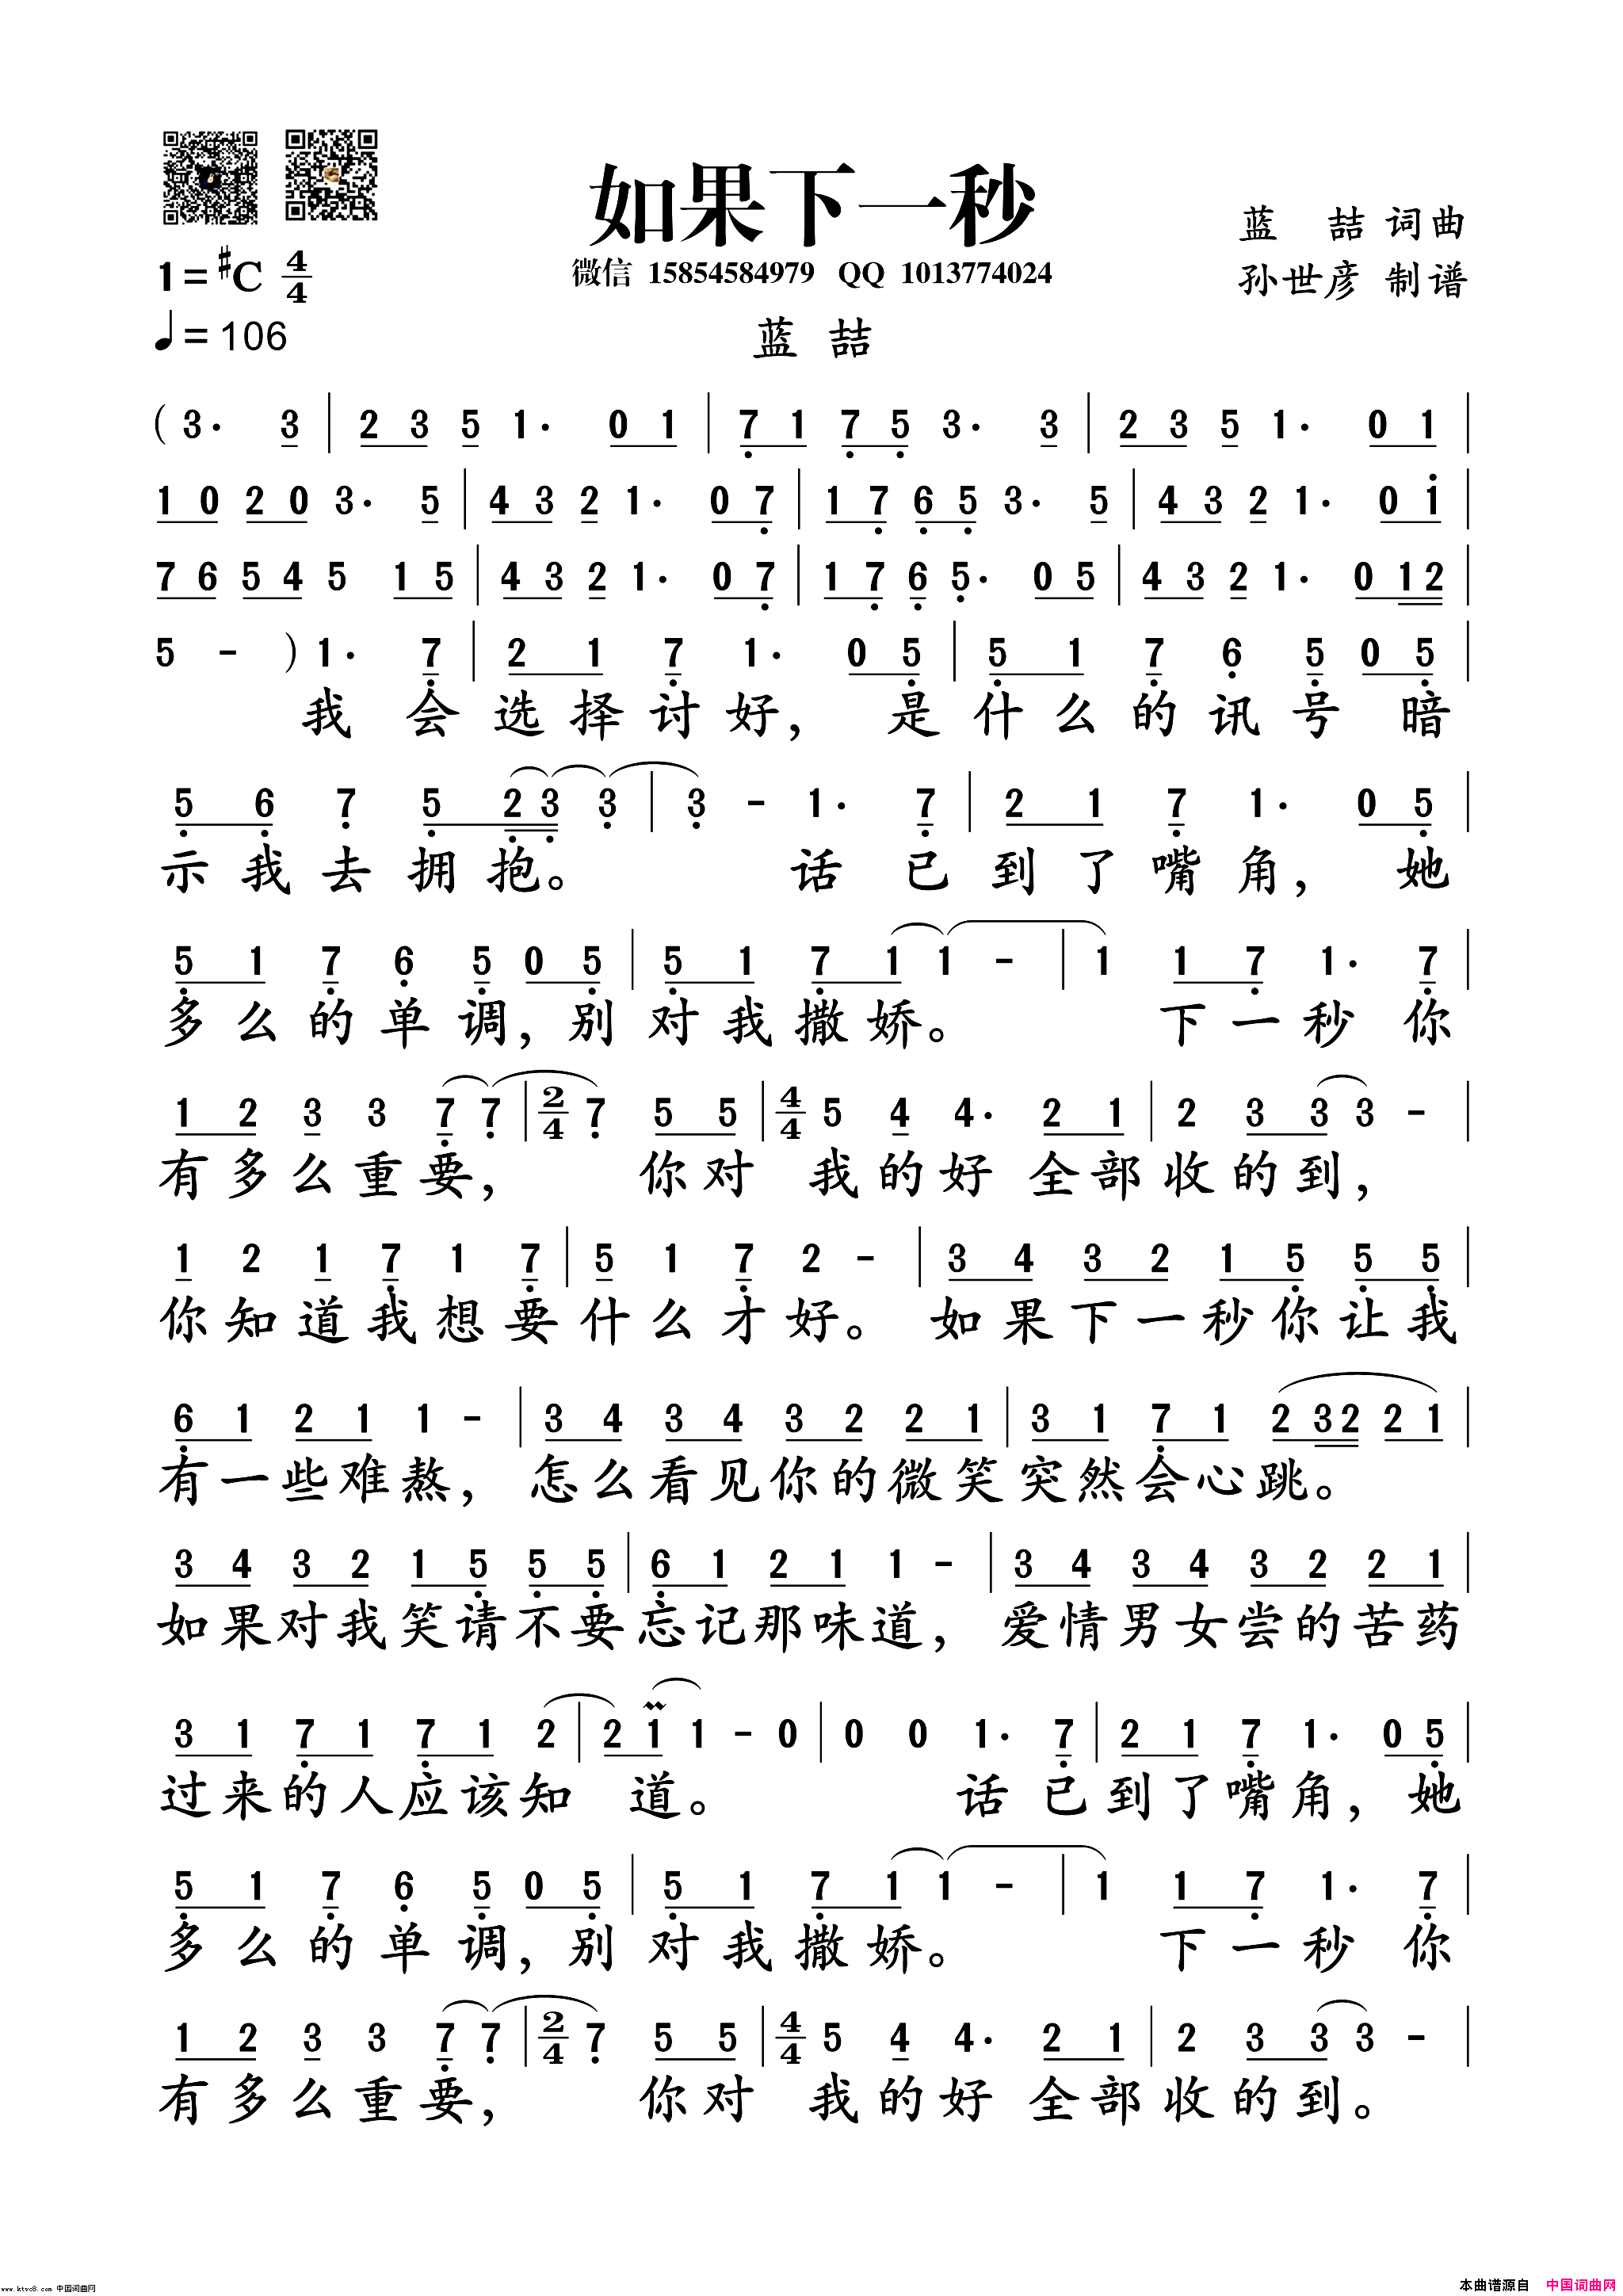 如果下一秒
蓝 喆 词曲
微信 15854584979 QQ 1013774024
孙世彦 制谱
1=#C 4/4
♩=106
蓝 喆
(3· 3 | 2 3 5 1· 0 1 | 7 1 7 5 3· 3 | 2 3 5 1· 0 1 |
1 0 2 0 3· 5 | 4 3 2 1· 0 7 | 1 7 6 5 3· 5 | 4 3 2 1· 0 1 |
7 6 5 4 5 1 5 | 4 3 2 1· 0 7 | 1 7 6 5· 0 5 | 4 3 2 1· 0 12 |
5 - ) 1· 7 | 2 1 7 1· 0 5 | 5 1 7 6 5 0 5 |
我 会 选 择 讨 好, 是 什 么 的 讯 号 暗
5 6 7 5 23 3 | 3 - 1· 7 | 2 1 7 1· 0 5 |
示 我 去 拥 抱。 话 已 到 了 嘴 角, 她
5 1 7 6 5 0 5 | 5 1 7 1 1 - | 1 1 7 1· 7 |
多 么 的 单 调, 别 对 我 撒 娇。 下 一 秒 你
1 2 3 3 7 7 | 2/4 7 5 5 | 4/4 5 4 4· 2 1 | 2 3 3 3 - |
有 多 么 重 要, 你 对 我 的 好 全 部 收 的 到,
1 2 1 7 1 7 | 5 1 7 2 - | 3 4 3 2 1 5 5 5 |
你 知 道 我 想 要 什 么 才 好。 如 果 下 一 秒 你 让 我
6 1 2 1 1 - | 3 4 3 4 3 2 2 1 | 3 1 7 1 2 32 2 1 |
有 一 些 难 熬, 怎 么 看 见 你 的 微 笑 突 然 会 心 跳。
3 4 3 2 1 5 5 5 | 6 1 2 1 1 - | 3 4 3 4 3 2 2 1 |
如 果 对 我 笑 请 不 要 忘 记 那 味 道, 爱 情 男 女 尝 的 苦 药
3 1 7 1 7 1 2 | 2 1 1 - 0 | 0 0 1· 7 | 2 1 7 1· 0 5 |
过 来 的 人 应 该 知 道。 话 已 到 了 嘴 角, 她
5 1 7 6 5 0 5 | 5 1 7 1 1 - | 1 1 7 1· 7 |
多 么 的 单 调, 别 对 我 撒 娇。 下 一 秒 你
1 2 3 3 7 7 | 2/4 7 5 5 | 4/4 5 4 4· 2 1 | 2 3 3 3 - |
有 多 么 重 要, 你 对 我 的 好 全 部 收 的 到。
www.ktvc8.com 中国词曲网
本曲谱源自 中国词曲网